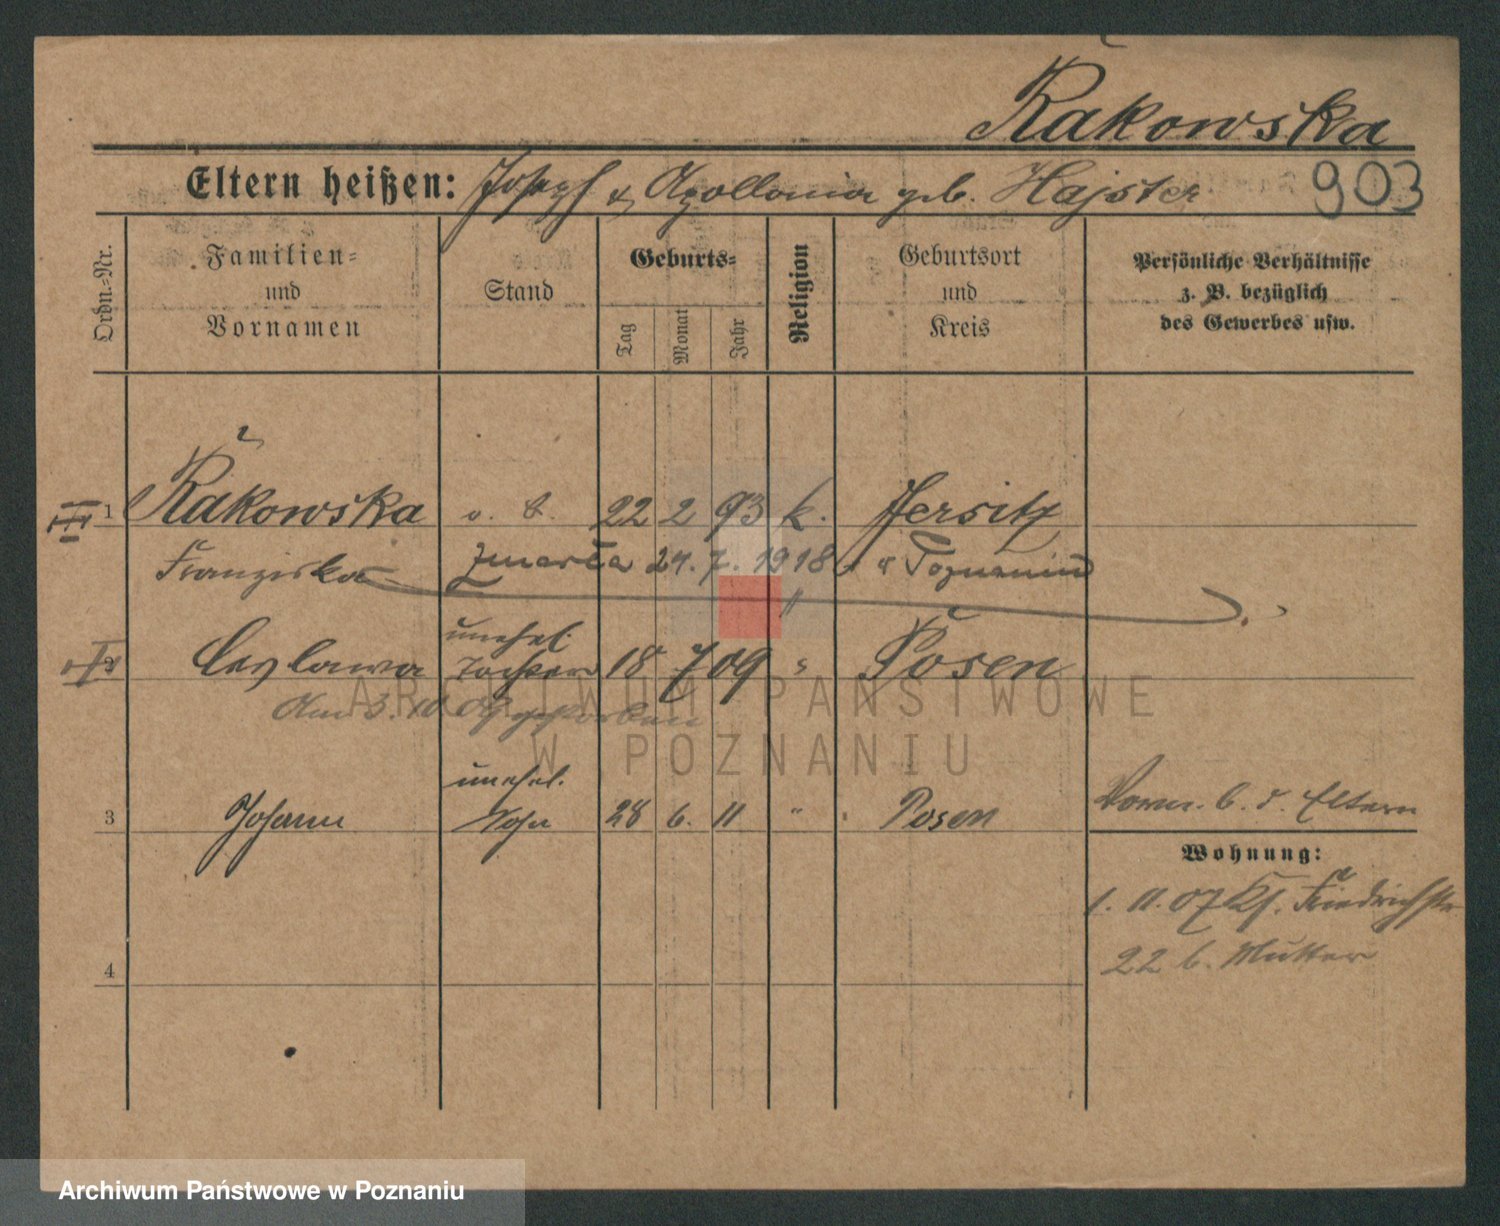 Rakowska
Eltern heißen: Joseph & Apollonia geb. Hajster 903
Ordn.-Nr. Familien- und Vornamen Stand Geburts- Tag Monat Jahr Religion Geburtsort und Kreis Persönliche Verhältnisse z. B. bezüglich des Gewerbes usw.
1 Rakowska o. S. 22 2 93 k. Jersitz
Franziska zmarła 24. 7. 1918 w Poznaniu
"
unehel.
2 Ceslawa Tochter 18 7 09 " Posen
Am 3. 10. 09 gestorben
unehel.
3 Johann Sohn 28 6. 11 " Posen Vorm. b. d. Eltern
Wohnung:
1. 11. 07 Friedrichstr.
22 b. Mutter
4
ARCHIWUM PAŃSTWOWE
W POZNANIU
Archiwum Państwowe w Poznaniu